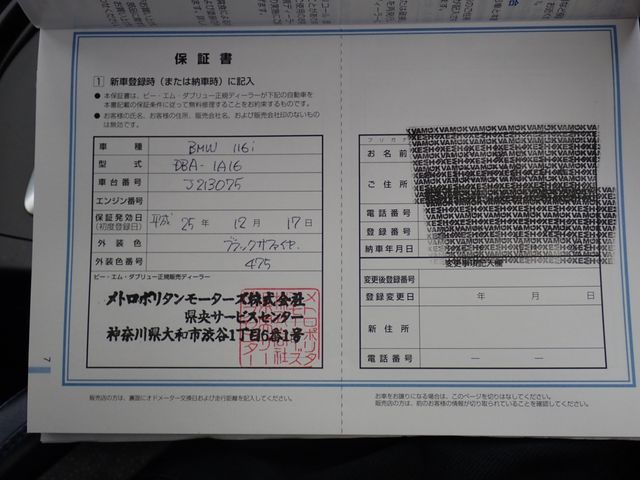 保証書
1 新車登録時(または納車時)に記入
● 本保証書は、ビー・エム・ダブリュー正規ディーラーが下記の自動車を
本書記載の保証条件に従って無料修理することをお約束するものです。
● お客様の氏名、お客様の住所、販売会社名、および販売会社印のないもの
は無効です。
車種 BMW 116i
型式 DBA-1A16
車台番号 J213075
エンジン番号
保証発効日
(初度登録日) 平成 25年 12月 17日
外装色 ブラックサファイヤ.
外装色番号 475
ビー・エム・ダブリュー正規販売ディーラー
メトロポリタンモーターズ株式会社
県央サービスセンター
神奈川県大和市渋谷1丁目6番1号
販売店の方は、裏面にオドメーター交換日および走行距離を記入してください。
7
フリガナ
お名前
ご住所
電話番号
登録番号
納車年月日
変更事項記入欄
変更後登録番号
登録変更日 年 月 日
新住所
電話番号 — —
お車をお譲りになる場合は、このページを切りはなしてください。
販売店の方は、前のお客様の情報が切り取られていることを確認してください。